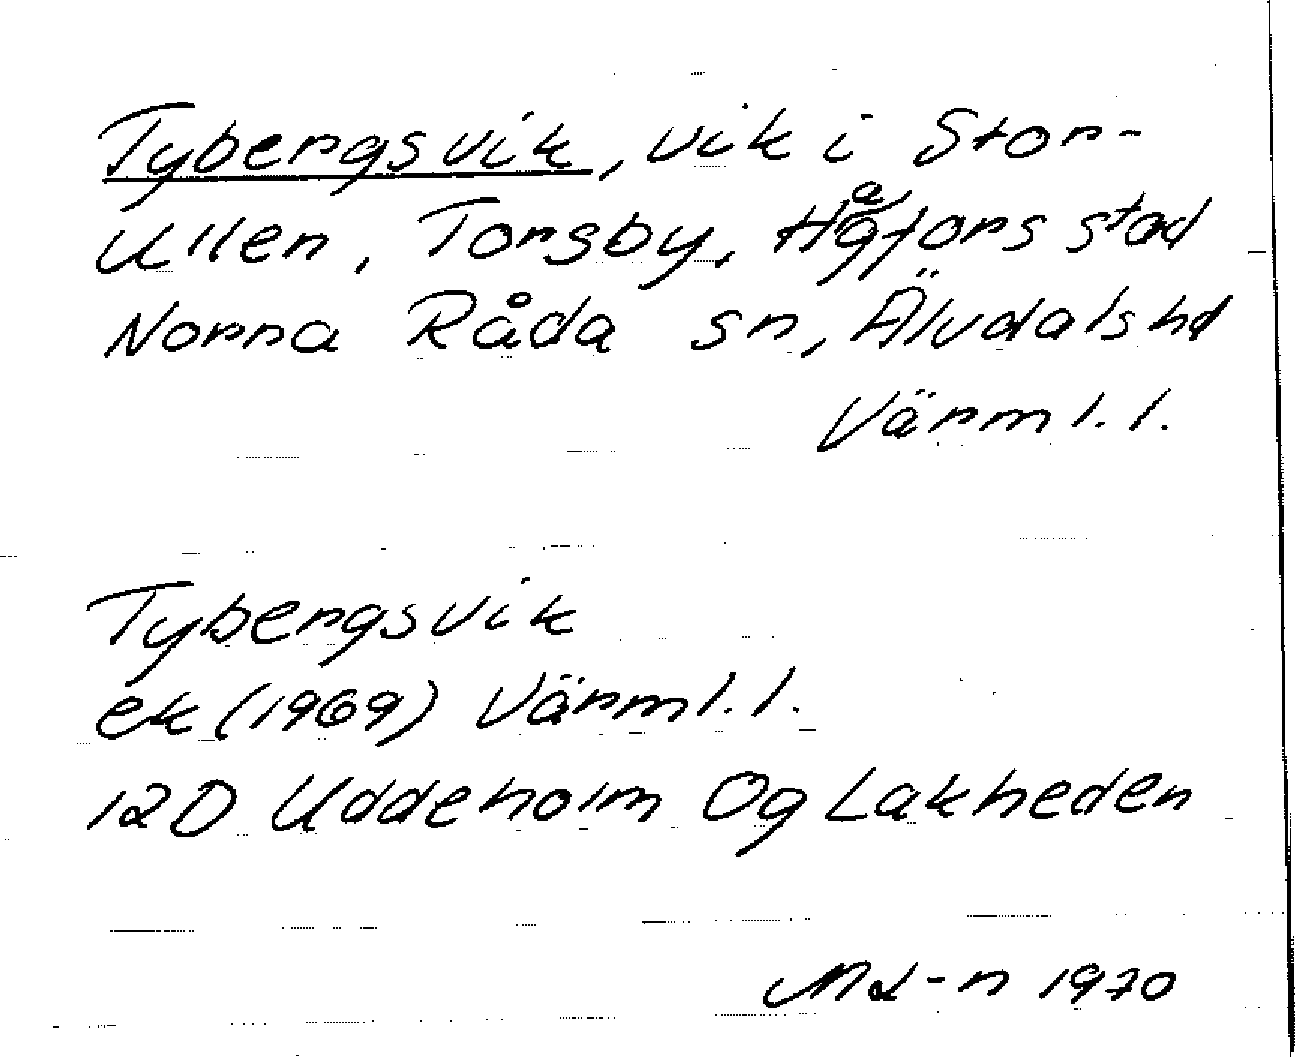 Tybergsvik, vik i Stor-
Ullen, Torsby, Hagfors stad
Norra Råda sn, Älvdals hd
Värml. l.
Tybergsvik
ek (1969) Värml. l.
12D Uddeholm Og Lakheden
1970